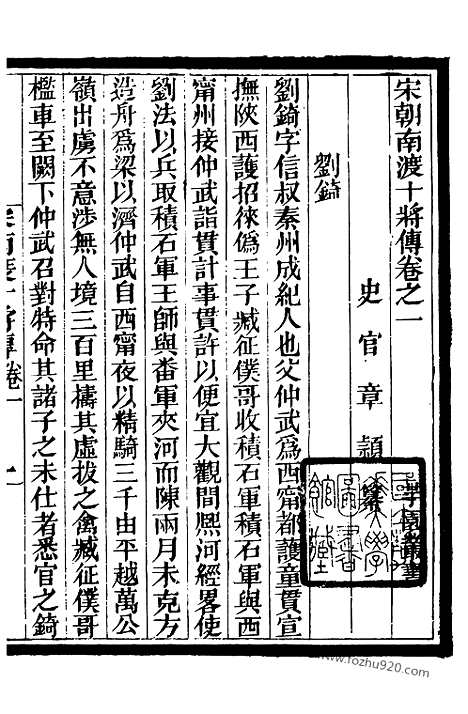 宋朝南渡十將傳卷之一
史官章頴
劉錡
劉錡字信叔秦州成紀人也父仲武爲西甯都護童貫宣
撫陜西護招徠僞王子臧征僕哥收積石軍積石軍與西
甯州接仲武詣貫計事貫許以便宜大觀間熈河經畧使
劉法以兵取積石軍王師與畨軍夾河而陳兩月未克方
造舟爲梁以濟仲武自西甯夜以精騎三千由平越萬公
嶺出虜不意涉無人境三百里擣其虛拔之禽臧征僕哥
檻車至闕下仲武召對特命其諸子之未仕者悉官之錡
宋南渡十將傳卷一
一
www.fozhu920.com